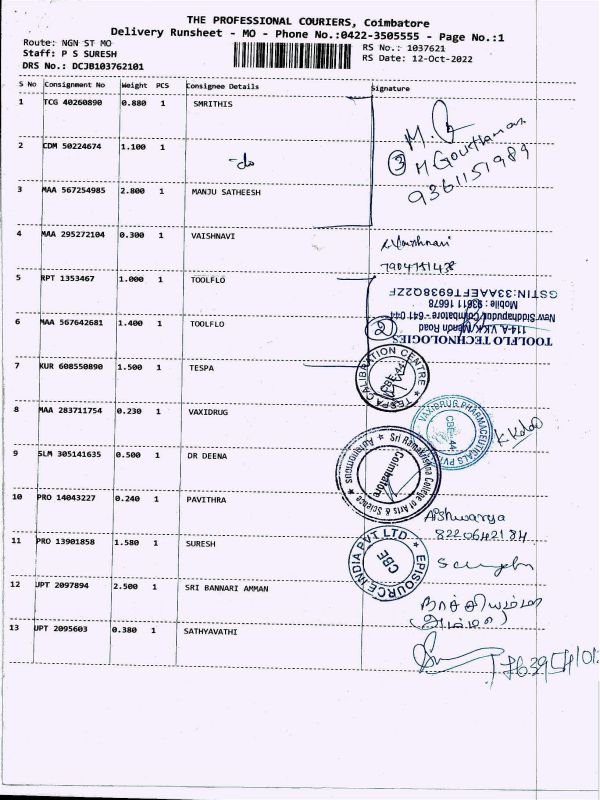 THE PROFESSIONAL COURIERS, Coimbatore
Delivery Runsheet - MO - Phone No.:0422-3505555 - Page No.:1
Route: NGN ST MO
RS No.: 1037621
Staff: P S SURESH
RS Date: 12-Oct-2022
DRS No.: DCJB103762101
S No Consignment No Weight PCS Consignee Details Signature
1 TCG 40260890 0.880 1 SMRITHIS
M.
2 CDM 50224674 1.100 1
-do
3 M Gouthaman
9361151989
3 MAA 567254985 2.800 1 MANJU SATHEESH
4 MAA 295272104 0.300 1 VAISHNAVI
Vaishnavi
7904751438
5 RPT 1353467 1.000 1 TOOLFLO
6 MAA 567642681 1.400 1 TOOLFLO
2
TOOLFLO TECHNOLOGIES
114-A, VKK Menon Road
New Siddhapudur, Coimbatore - 641 044
Mobile : 93611 16678
GSTIN:33AAEFT6938Q2ZF
7 KUR 608550890 1.500 1 TESPA
TESPA CALIBRATION CENTRE
CBE-44
8 MAA 283711754 0.230 1 VAXIDRUG
VAXIDRUG PHARMACEUTICALS PVT
CBE-44
9 SLM 305141635 0.500 1 DR DEENA
Sri Ramakrishna College of Arts & Science
Autonomous
Coimbatore
10 PRO 14043227 0.240 1 PAVITHRA
Aishwarya
8220642184
11 PRO 13901858 1.580 1 SURESH
EPISOURCE INDIA PVT LTD
CBE
12 UPT 2097894 2.500 1 SRI BANNARI AMMAN
13 UPT 2095603 0.380 1 SATHYAVATHI